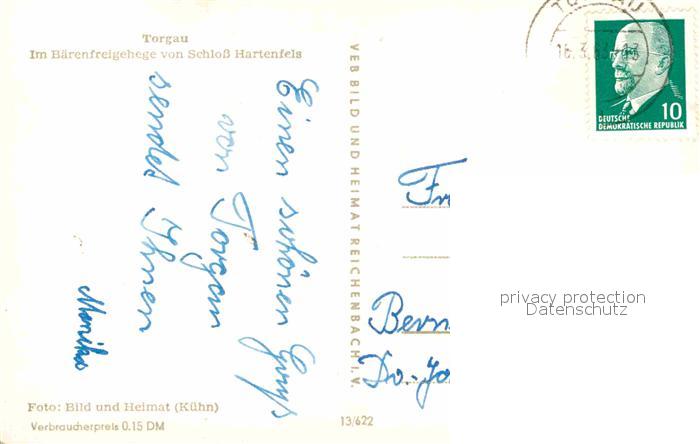 Torgau
Im Bärenfreigehege von Schloß Hartenfels
Einen schönen Gruß
von Torgau
sendet Ihnen
Monika
Foto: Bild und Heimat (Kühn)
Verbraucherpreis 0.15 DM
VEB BILD UND HEIMAT REICHENBACH I. V.
13/622
16.3.63
10
DEUTSCHE
DEMOKRATISCHE REPUBLIK
Fr
Bern
Dr.-Jo
privacy protection
Datenschutz